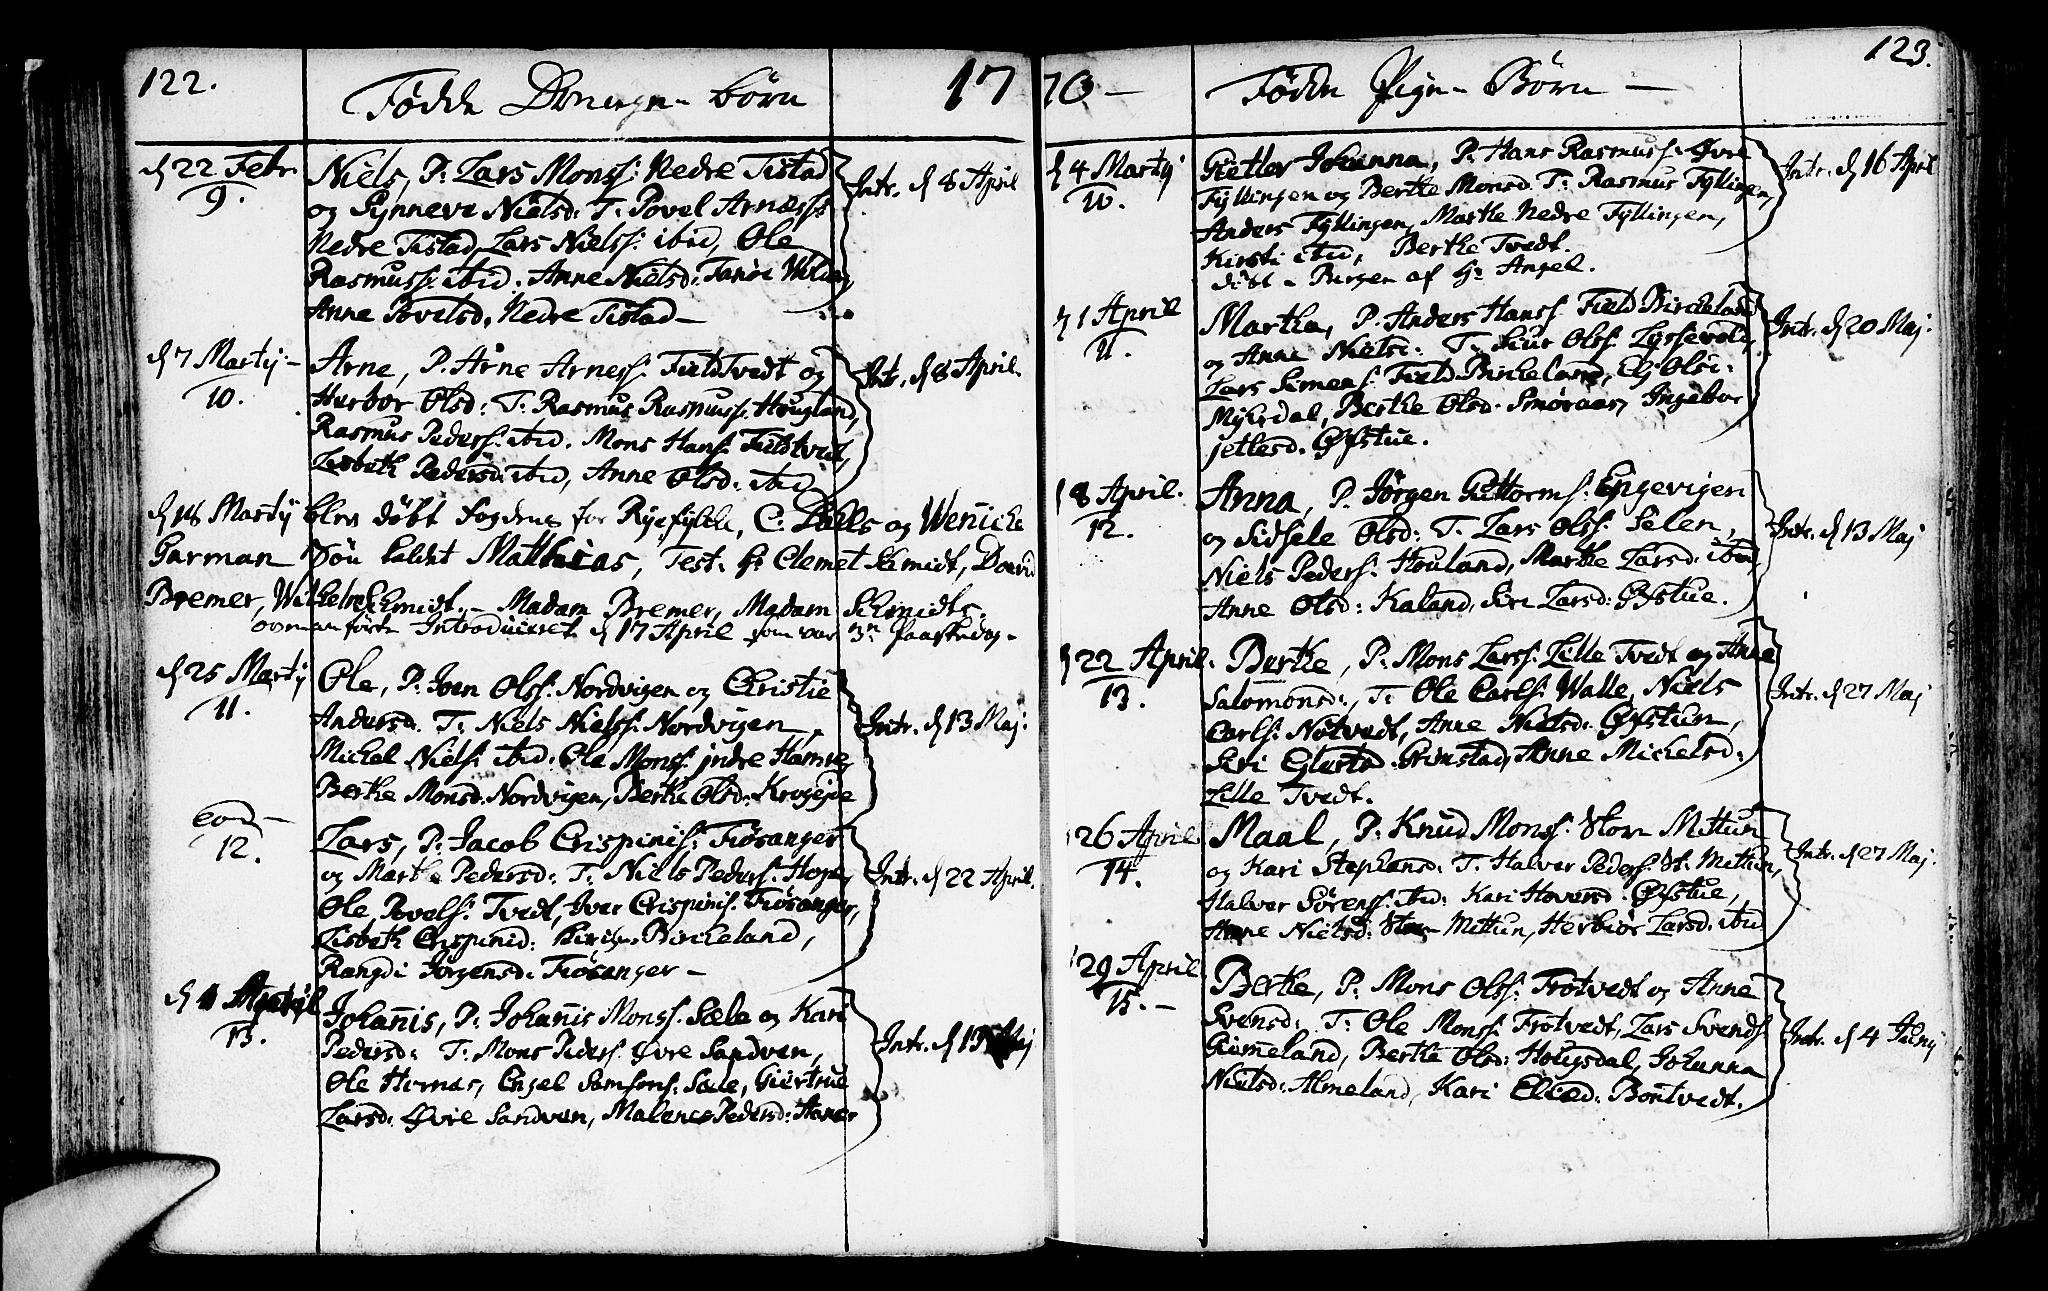 122.
Fødde Drenge-børn
17
d 22 Febr
9.
Niels, P: Lars Monss: Nedre Tistad
og Synneve Nielsd: T: Povel Arnæss:
Nedre Tistad, Lars Nielss: ibid, Ole
Rasmuss: ibid. Anne Nielsd:
Anne Povelsd. Nedre Tistad-
Intr. d 8 April
d 7 Martij-
10.
Arne, P. Arne Arness: Field Tvedt og
Herbor Olsd: T: Rasmus Rasmuss. Hougland,
Rasmus Peders: ibid. Mons Hans: Fieldtvedt,
Lisbeth Pedersd: ibid, Anne Olsd: ibid
Intr. d 8 April.
d 18 Martij blev døbt fogdens for Ryefylke, C: Dalls og Wenicke
Garman Søn kaldet Matthias, Test: Hr Clemet Scmidt, David
Bremer, Wilhelm Schmidt.- Madam Bremer, Madam Schmidts.
Introduceret d 17 April som var 3die Paaskedag-
d 25 Martij
11.
Ole, P: Joen Olss: Nordvigen og Christie
Andersd: T: Niels Nielss: Nordvigen,
Michel Niels: ibid. Ole Monss: jndre Hamre,
Berthe Monsd: Nordvigen, Berthe Olsd: Krogeie
Intr. d 13 Maj:
eod-
12.
Lars, P: Jacob Crispinis: Fiøsanger
og Marthe Pedersd: T: Niels Peders: Hope,
Ole Povels: Tvedt, Iver Crispinis: Fiøsanger,
Lisbeth Crispinid: Birckeland,
Rangdi Jørgensd: Fiøsanger-
Intr. d 22 April.
d 1 April
13.
Johannis, P: Johannis Monss: Sæle og Kari
Pedersd: T: Mons Peders: Øvre Sandven,
Ole Hornæs, Engel Samsons: Sæle, Giertrue
Larsd: Øvre Sandven, Malene Pedersd:
Intr. d 13 Maj
70-
Fødde Pige-Børn-
123.
d 4 Martij
10.
Giertler Johanna, P: Hans Rasmuss: Øvre
Fyllingen og Berthe Monsd: T: Rasmus Fyllingen,
Anders Fyllingen, Marthe Nedre Fyllingen,
Kirsti ibid, Berthe Tvedt.
døbt i Bergen af Hr Angel.
Intr. d 16 April
d 1 April
11.
Martha, P: Anders Hanss: Field Birckeland
og Anne Nielsd: T: Siur Olss: Lyssevold,
Lars Simens: Field Birckeland, Ole Olss:
Myherdal, Berthe Olsd: Smøraas, Ingebor
jetlesd. Øfstue.
Intr. d 20 Maj.
18 April.
12.
Anna, P: Jørgen Guttorms: Engevigen
og Sidsele Olsd: T: Lars Olss: Selen,
Niels Peders: Houland, Marthe Larsd: ibid,
Anne Olsd: Kaland, Siri Larsd: Øfstue.
Intr. d 13 Maj
d 22 April.
13.
Berthe, P: Mons Larss: Lille Tvedt og Anne
Salomonsd:, T: Ole Carls: Walle, Niels
Carls: Nøtvedt, Anne Nielsd: Øfstuen,
Siri Grimstad, Anne Michelsd:
Lille Tvedt.
Intr. d 27 Maj
26 April
14.
Maal, P: Knud Monss: Store Mittun
og Kari Stephensd: T: Halver Peders: St: Mittun,
Halver Sørens: ibid: Kari Haversd: Øfstue,
Anne Nielsd: Store Mittun, Herbiør Larsd: ibid
Intr. d 27 Maj.
29 April
15.-
Berthe, P: Mons Olss: Trotvedt og Anne
Svensd: T: Ole Monss: Trotvedt, Lars Svends:
Giømeland, Berthe Olsd: Hougsdal, Johanna
Nielsd: Almeland, Kari Elied: Bontvedt.
Intr. d 4 Junij